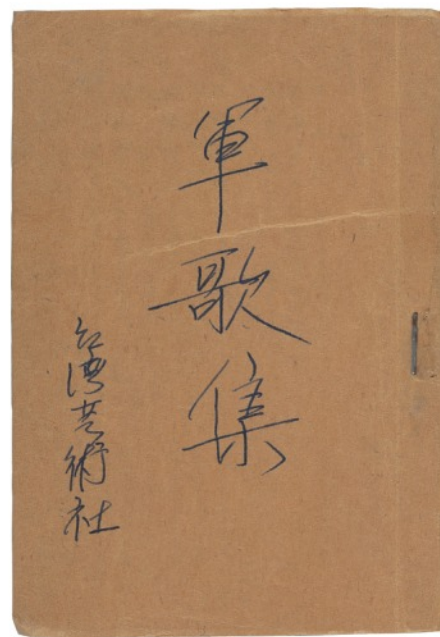 軍歌集
台湾芸術社